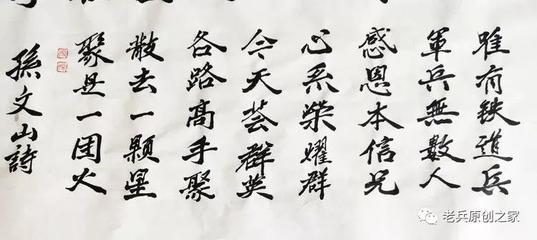 唯有鉄道兵
軍兵無數人
感恩本信兄
心系榮耀群
今天荟群英
各路高手聚
散去一顆星
聚是一团火
孫文山詩
老兵原创之家